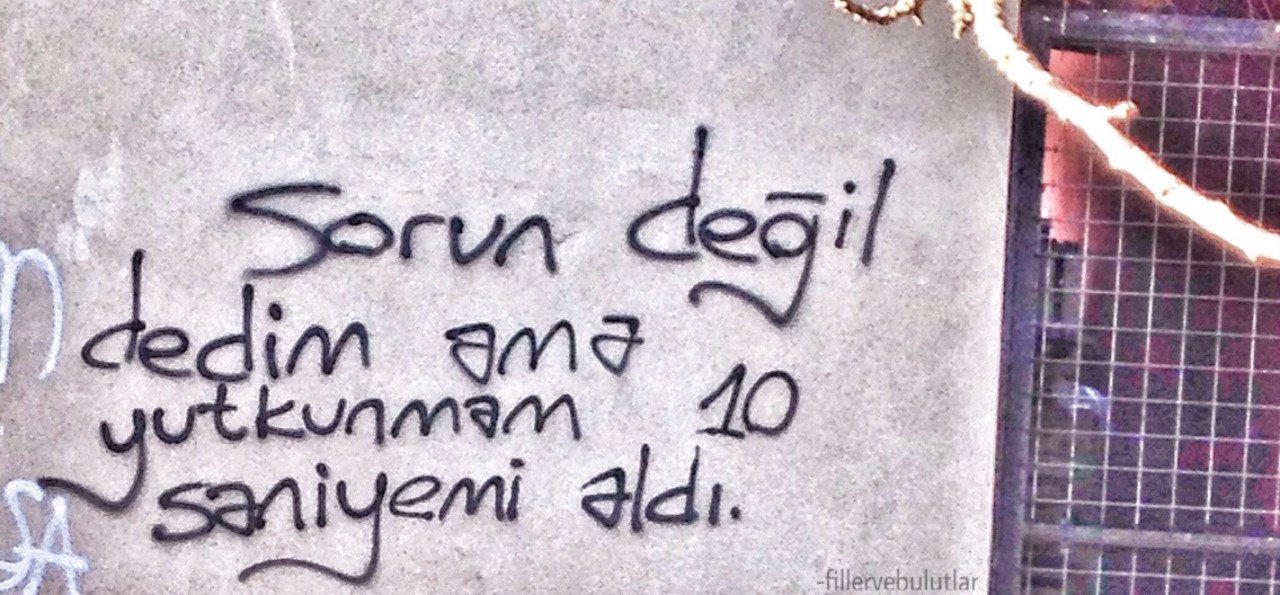 Sorun değil
dedim ama
yutkunmam 10
saniyemi aldı.
SA
-fillervebulutlar